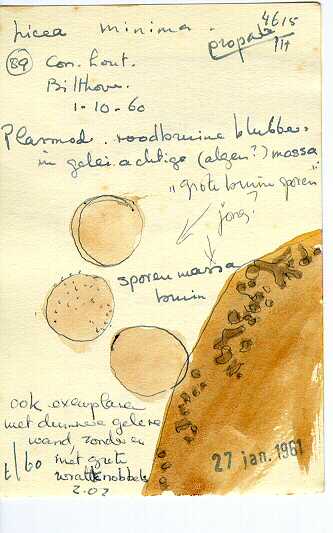 Licea minima.
4615
propat
III
89 Con. hout.
Bilthoven.
1-10-60
Plasmod. roodbruine blubber
in gelei achtige (algen?) massa
"grote bruin sporen"
jong?
sporenmassa
bruin
ook exemplaren
met dunnere gelere
wand, zonder en
t/bo met grote
wratknobbels
z.oz
27 jan. 1961